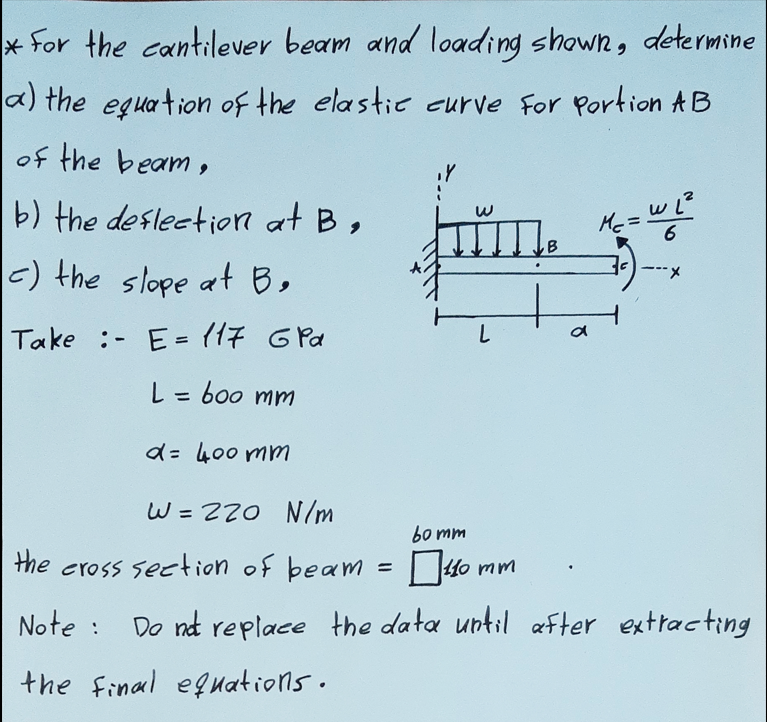 * For the cantilever beam and loading shown, determine
a) the equation of the elastic curve for portion AB
of the beam,
b) the deflection at B,
c) the slope at B,
Take :- E = 117 GPa
L = 600 mm
a = 400 mm
W = 220 N/m
the cross section of beam = 60 mm 110 mm .
Note : Do not replace the data until after extracting
the final equations.
Y
W
Mc = WL²/6
A
B
C
x
L
a